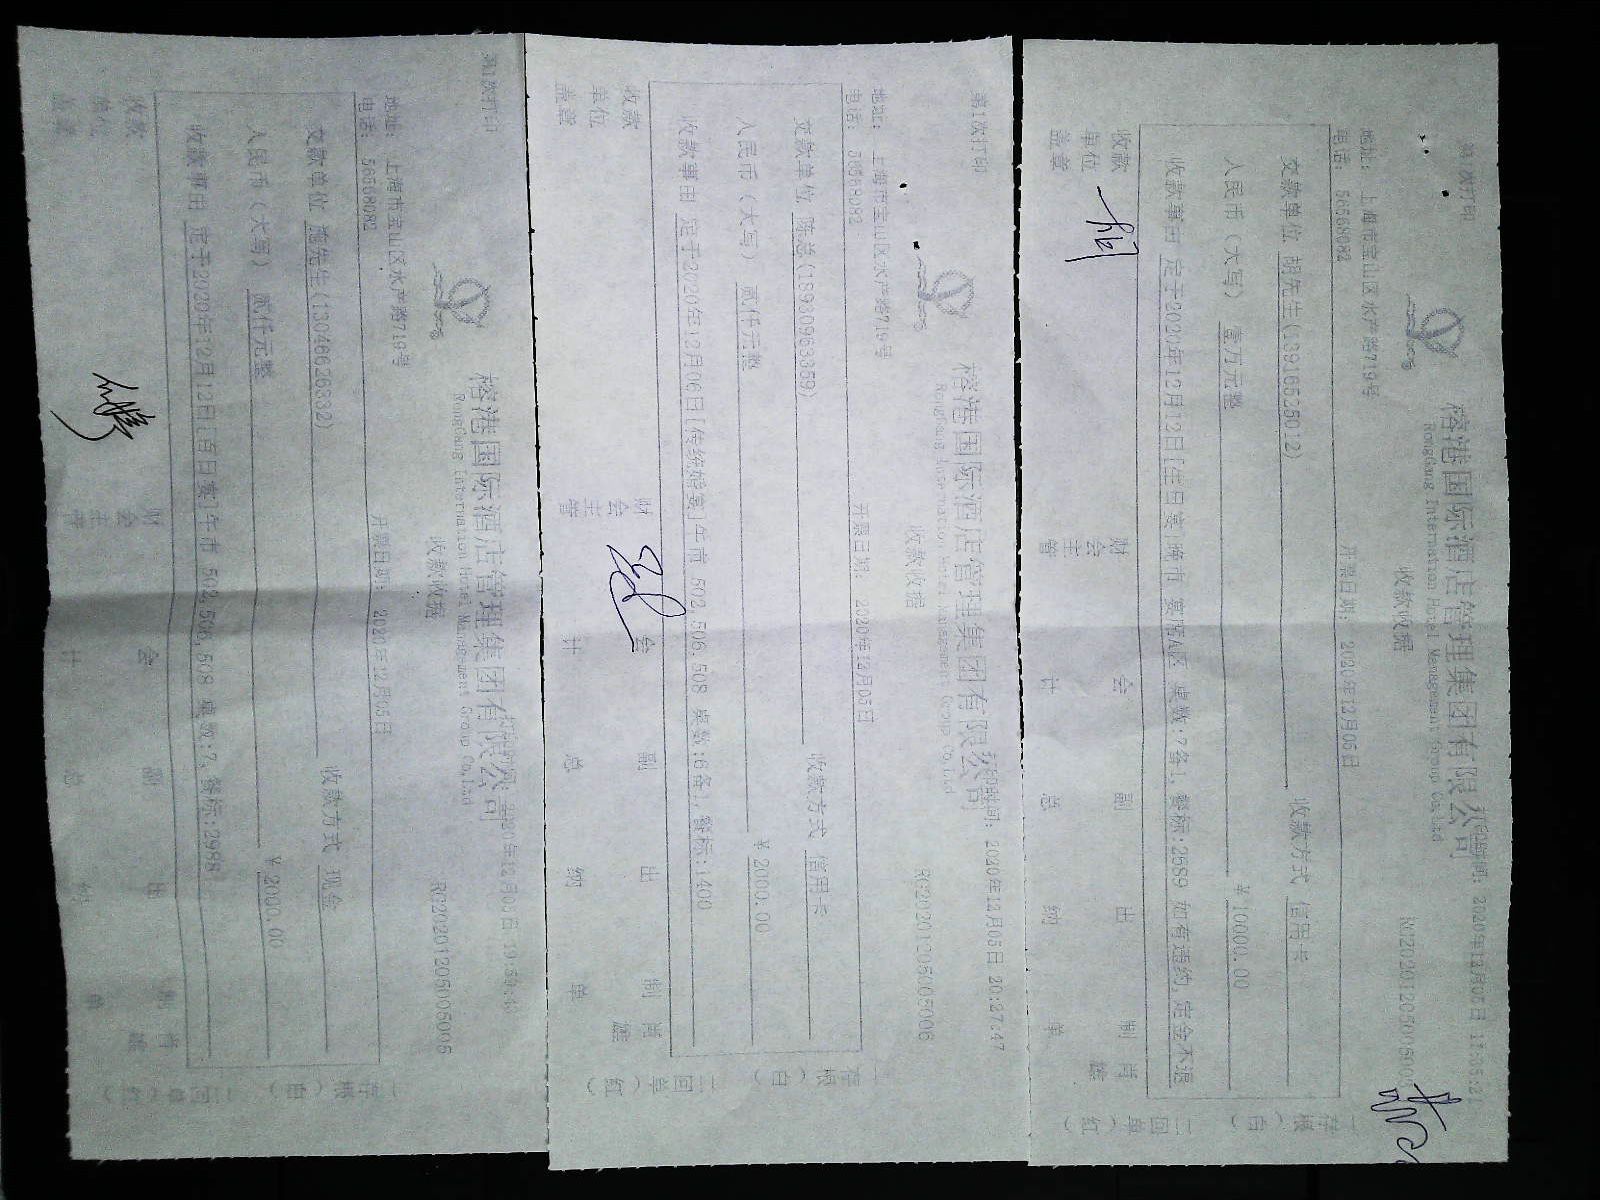 第1次打印
榕港国际酒店管理集团有限公司
RongGang International Hotel Management Group Co.Ltd
收款收据
RG20201205005005
地址： 上海市宝山区水产路719号
电话： 56568082
开票日期： 2020年12月05日
交款单位 (13046626332)
收款方式 现金
人民币（大写） 贰仟元整
¥ 2000.00
收款事由 定于2020年12月12日[百日宴]午市 502,506,508 桌数:7, 餐标:2988
收款单位盖章
财会主管
会计
副总
出纳
制单 肖雄
一存根（白）
二回单（红）
第1次打印
打印时间： 2020年12月05日 20:27:47
榕港国际酒店管理集团有限公司
RongGang International Hotel Management Group Co.Ltd
收款收据
RG20201205005006
地址： 上海市宝山区水产路719号
电话： 56568082
开票日期： 2020年12月05日
交款单位 陈总(18930963359)
收款方式 信用卡
人民币（大写） 贰仟元整
¥ 2000.00
收款事由 定于2020年12月06日[传统婚宴]午市 502,506,508 桌数:6备1, 餐标:1400
收款单位盖章
财会主管
会计
副总
出纳
制单 肖雄
一存根（白）
二回单（红）
榕港国际酒店管理集团有限公司
RongGang International Hotel Management Group Co.Ltd
收款收据
地址： 上海市宝山区水产路719号
电话： 56568082
开票日期： 2020年12月05日
交款单位 胡先生(13916525012)
收款方式 信用卡
人民币（大写） 壹万元整
¥10000.00
收款事由 定于2020年12月12日[生日宴]晚市 宴A区 桌数:7备1, 餐标:2689 如有违约,定金不退
收款单位盖章
财会主管
会计
副总
出纳
制单 肖雄
一存根（白）
二回单（红）